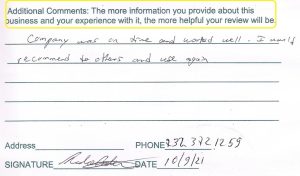 Additional Comments: The more information you provide about this
business and your experience with it, the more helpful your review will be.
Company was on time and worked well. I would
recommend to others and use again
Address PHONE 232 372 1259
SIGNATURE DATE 10/9/21